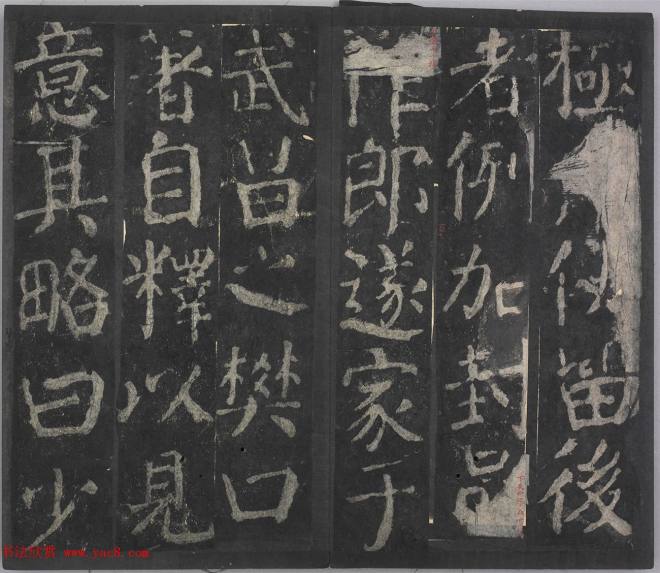 極 使留後
者例加封品
作郎遂家于
武昌之樊口
著自釋以見
意其略曰少
书法欣赏 www.yac8.com